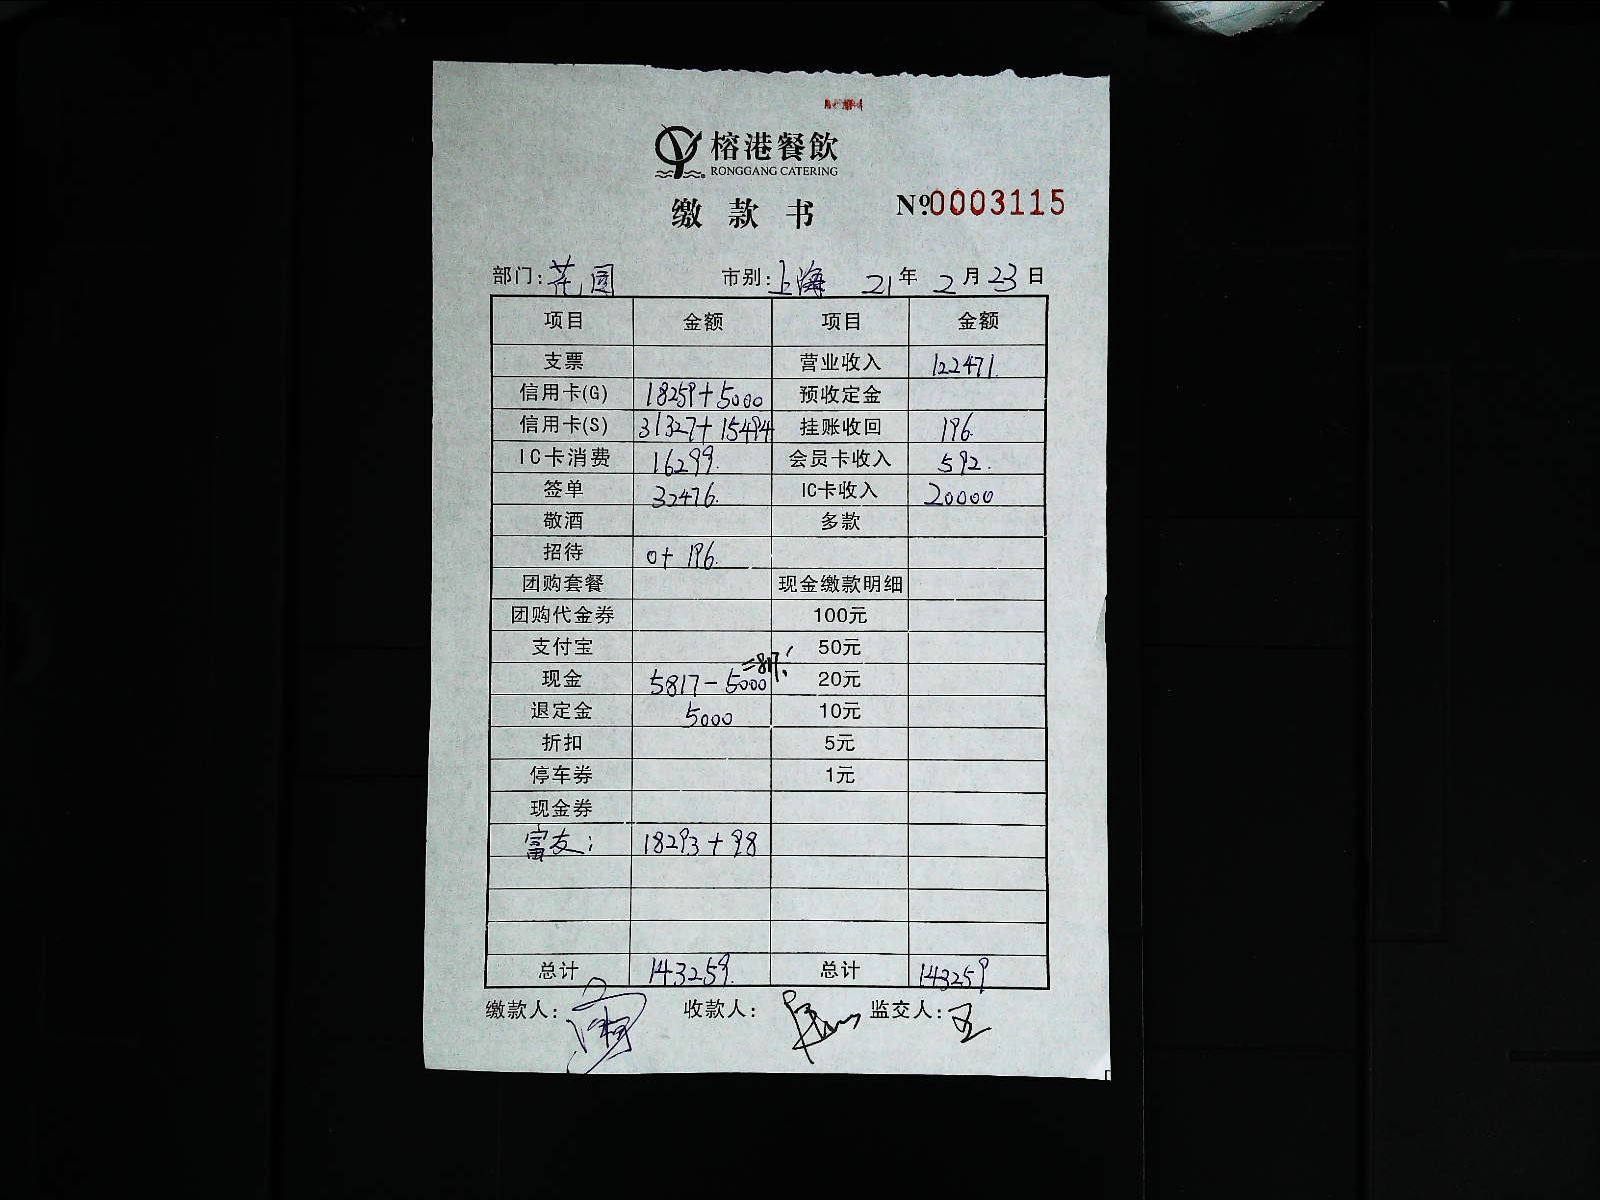 榕港餐飲
RONGGANG CATERING
缴款书 №0003115
部门: 花园 市别: 上海 21年2月23日
项目 金额 项目 金额
支票 营业收入 122471.
信用卡(G) 18259+5000 预收定金
信用卡(S) 31327+15494 挂账收回 196.
IC卡消费 16299. 会员卡收入 592.
签单 32476. IC卡收入 20000
敬酒 多款
招待 0+196.
团购套餐 现金缴款明细
团购代金券 100元
支付宝 50元
现金 5817-5000=817. 20元
退定金 5000 10元
折扣 5元
停车券 1元
现金券
富友: 18293+98
总计 143259. 总计 143259
缴款人: 收款人: 监交人: